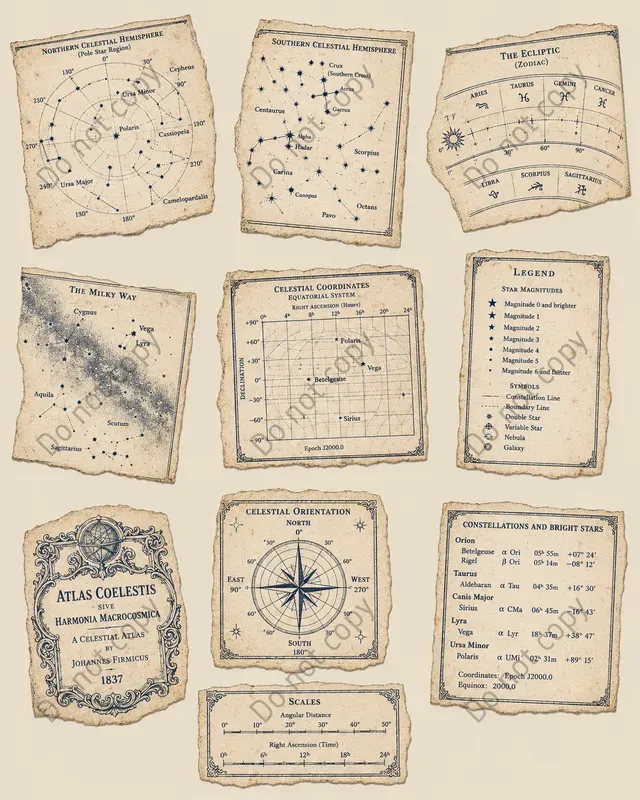 NORTHERN CELESTIAL HEMISPHERE
(Pole Star Region)
0°
130°
30°
Cepheus
230°
Ursa Minor
90°
Polaris
190°
Cassiopeia
270°
270°
240°
Ursa Major
Camelopardalis
150°
180°
Do not copy
SOUTHERN CELESTIAL HEMISPHERE
Crux
(Southern Cross)
Acrux
Gacrux
Centaurus
Hadar
Scorpius
Carina
Canopus
Octans
Pavo
Do not copy
THE ECLIPTIC
(ZODIAC)
ARIES
TAURUS
GEMINI
CANCER
0°
30°
60°
90°
LIBRA
SCORPIUS
SAGITTARIUS
Do not copy
THE MILKY WAY
Cygnus
Vega
Lyra
Aquila
Scutum
Sagittarius
Do not copy
CELESTIAL COORDINATES
EQUATORIAL SYSTEM
RIGHT ASCENSION (HOURS)
0h 4h 8h 12h 16h 20h 24h
DECLINATION
+90°
+60°
+30°
0°
-30°
-60°
-90°
Polaris
Vega
Betelgeuse
Sirius
Epoch J2000.0
Do not copy
LEGEND
STAR MAGNITUDES
Magnitude 0 and brighter
Magnitude 1
Magnitude 2
Magnitude 3
Magnitude 4
Magnitude 5
Magnitude 6 and fainter
SYMBOLS
Constellation Line
Boundary Line
Double Star
Variable Star
Nebula
Galaxy
Do not copy
ATLAS COELESTIS
SIVE
HARMONIA MACROCOSMICA
A CELESTIAL ATLAS
BY
JOHANNES FIRMICUS
1837
Do not copy
CELESTIAL ORIENTATION
NORTH
0°
30° 30°
60° 60°
EAST
90°
WEST
270°
60° 60°
30° 30°
SOUTH
180°
Do not copy
CONSTELLATIONS AND BRIGHT STARS
Orion
Betelgeuse α Ori 05h 55m +07° 24'
Rigel β Ori 05h 14m −08° 12'
Taurus
Aldebaran α Tau 04h 35m +16° 30'
Canis Major
Sirius α CMa 06h 45m −16° 43'
Lyra
Vega α Lyr 18h 37m +38° 47'
Ursa Minor
Polaris α UMi 02h 31m +89° 15'
Coordinates: Epoch J2000.0
Equinox: 2000.0
Do not copy
SCALES
Angular Distance
0° 10° 20° 30° 40° 50°
Right Ascension (Time)
0h 6h 12h 18h 24h